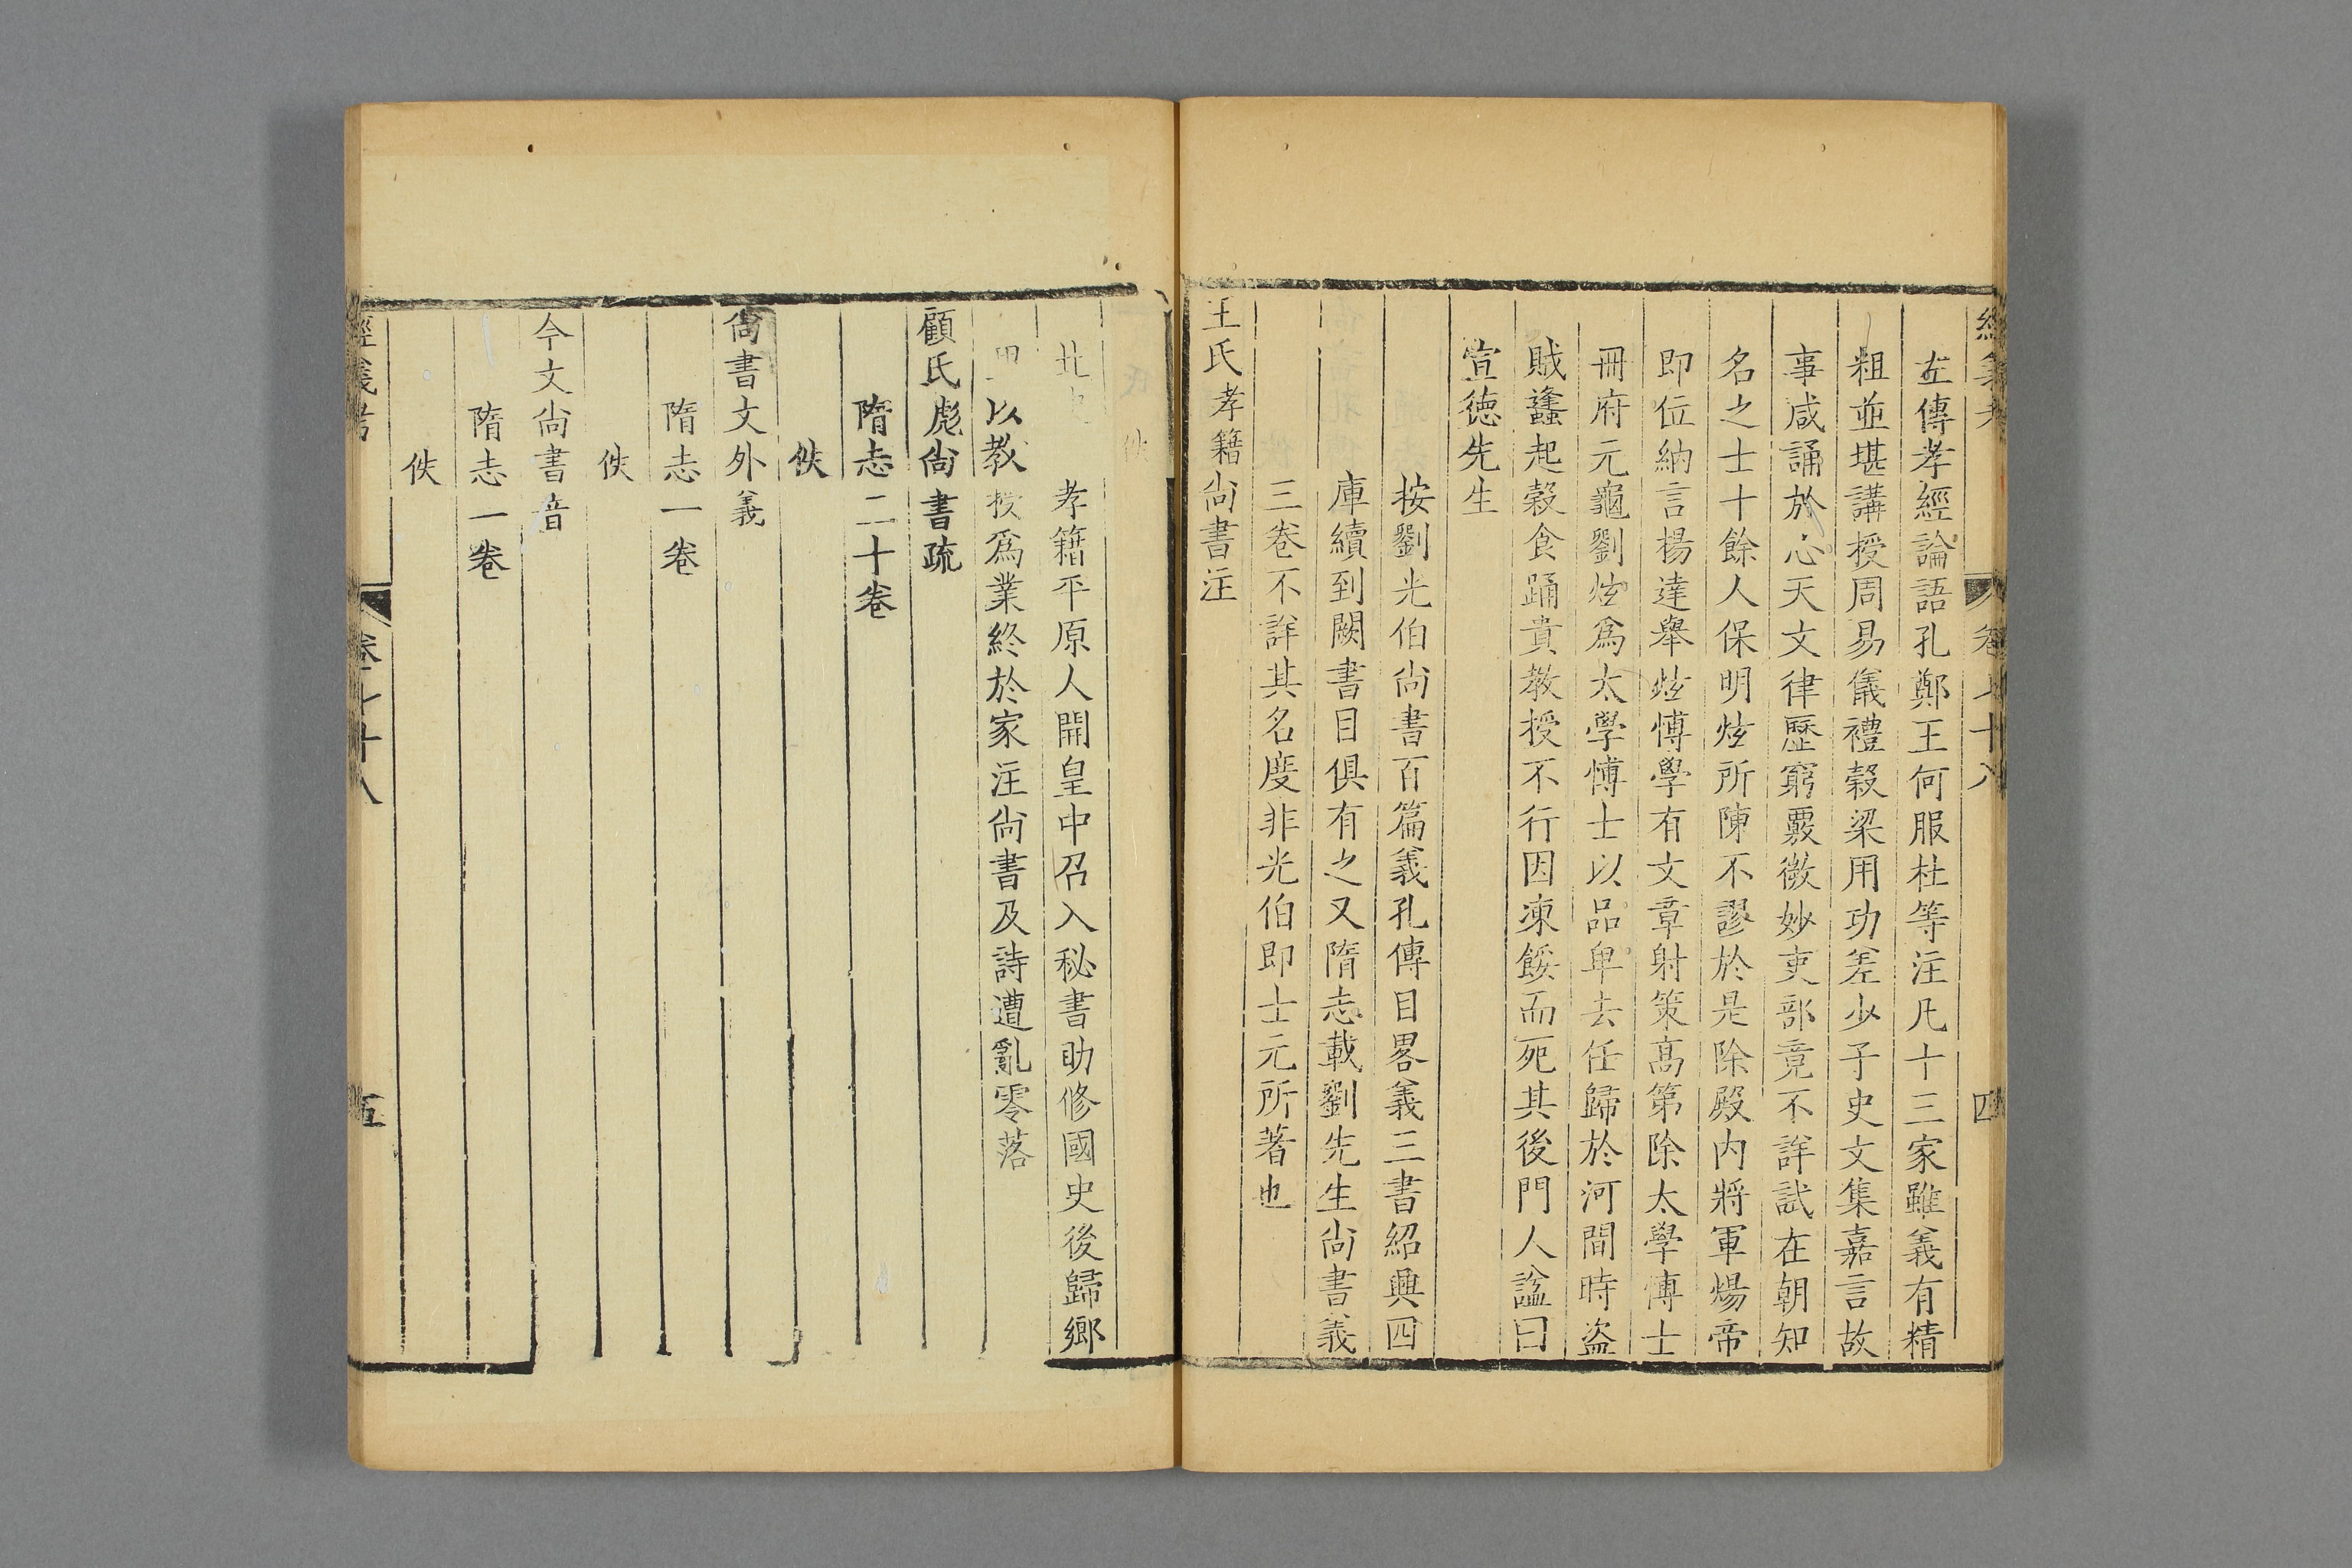 經義考 卷七十八 四
左傳孝經論語孔鄭王何服杜等注凡十三家雖義有精
粗並堪講授周易儀禮穀梁用功差少子史文集嘉言故
事咸誦於心天文律歷窮覈微妙吏部竟不詳試在朝知
名之士十餘人保明炫所陳不謬於是除殿内將軍煬帝
即位納言楊達舉炫愽學有文章射策髙第除太學愽士
冊府元龜劉炫爲太學愽士以品卑去任歸於河間時盗
賊蠭起穀食踊貴教授不行因凍餒而死其後門人諡曰
宣徳先生
按劉光伯尚書百篇義孔傳目畧義三書紹興四
庫續到闕書目俱有之又隋志載劉先生尚書義
三卷不詳其名度非光伯即士元所著也
王氏孝籍尚書注
佚
北史 孝籍平原人開皇中召入秘書助修國史後歸鄉
以教授爲業終於家注尚書及詩遭亂零落
顧氏彪尚書疏
隋志二十卷
佚
尚書文外義
隋志一卷
佚
今文尚書音
隋志一卷
佚
經義考 卷七十八 五